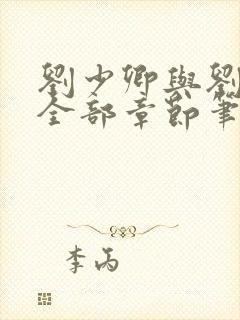 劉少卿與劉
全部章節筆
李丙